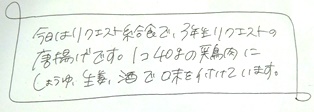 今日はリクエスト給食で、3年生リクエストの
唐揚げです。1コ40gの鶏肉に
しょうゆ、生姜、酒で味を付けています。